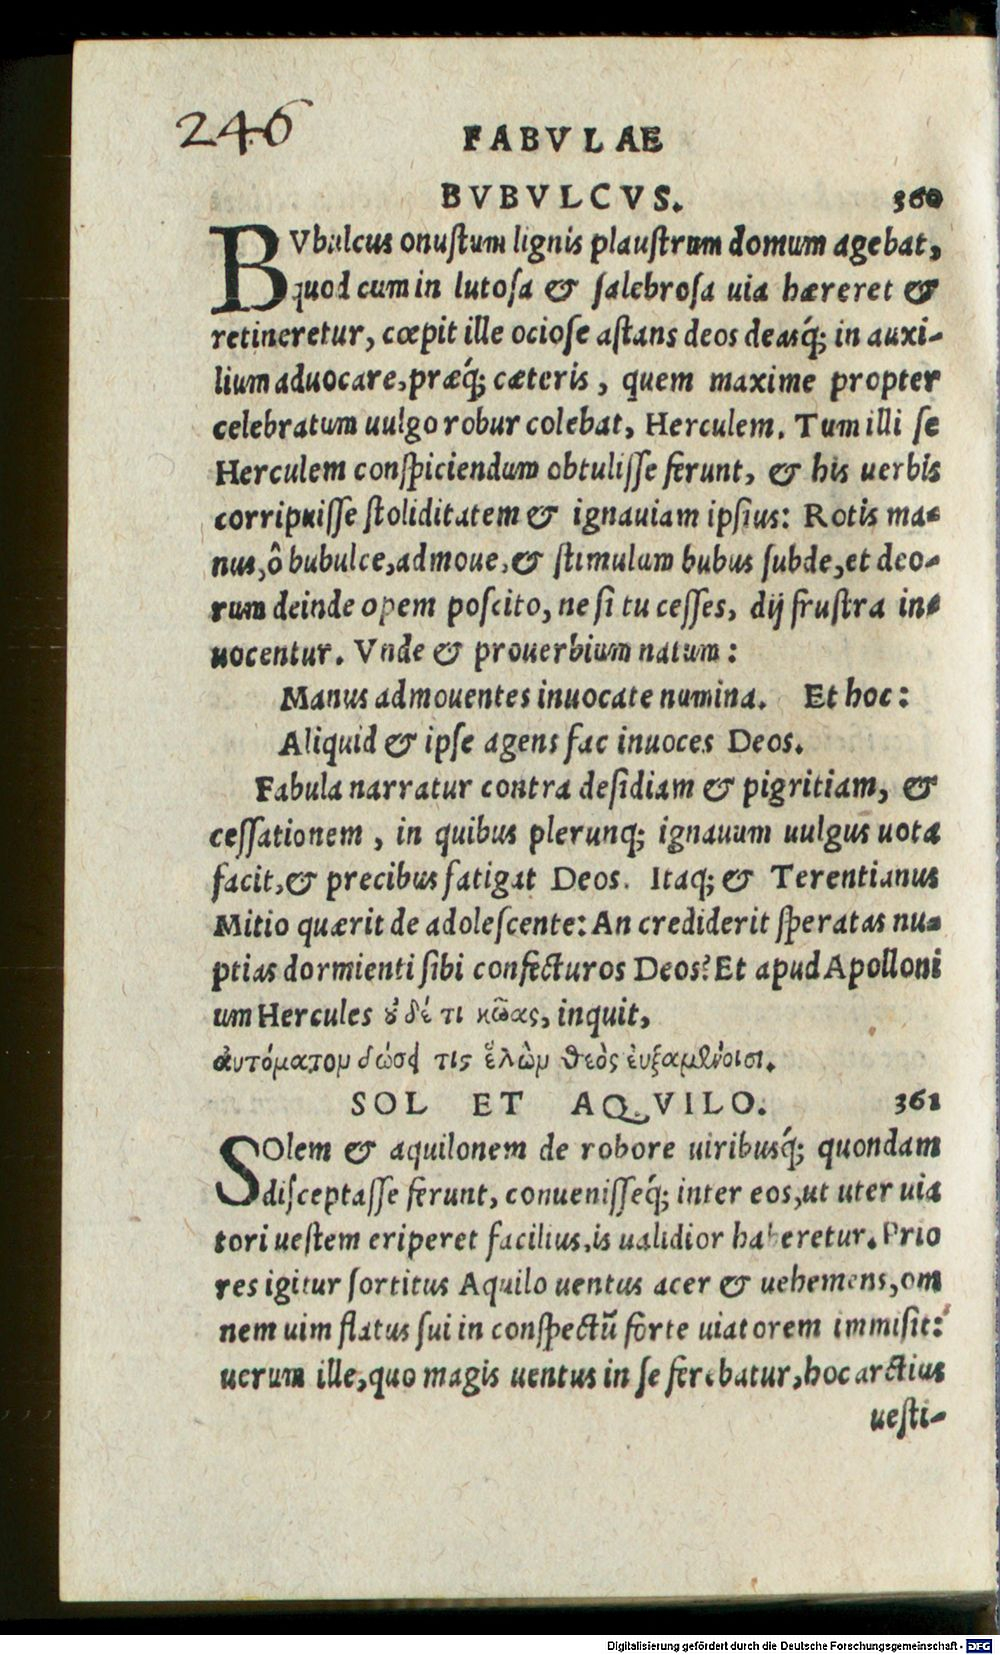 246
FABVLAE
BVBVLCVS. 360
BVbulcus onuſtum lignis plauſtrum domum agebat,
quod cum in lutoſa & ſalebroſa uia hæreret &
retineretur, cœpit ille ocioſe aſtans deos deasq́; in auxi-
lium aduocare, præq́; cæteris, quem maxime propter
celebratum uulgo robur colebat, Herculem. Tum illi ſe
Herculem conſpiciendum obtuliſſe ferunt, & his uerbis
corripuiſſe ſtoliditatem & ignauiam ipſius: Rotis ma-
nus, ô bubulce, admoue, & ſtimulum bubus ſubde, et deo-
rum deinde opem poſcito, ne ſi tu ceſſes, dij fruſtra in-
uocentur. Vnde & prouerbium natum:
Manus admouentes inuocate numina. Et hoc:
Aliquid & ipſe agens fac inuoces Deos.
Fabula narratur contra deſidiam & pigritiam, &
ceſſationem, in quibus plerunq; ignauum uulgus uota
facit, & precibus fatigat Deos. Itaq; & Terentianus
Mitio quærit de adoleſcente: An crediderit ſperatas nu-
ptias dormienti ſibi confecturos Deos? Et apud Apolloni
um Hercules ȣ̓ δέ τι κῶας, inquit,
αὐτόματον δώσει τις ἑλὼν θεὸς εὐξαμένοισι.
SOL ET AQVILO. 361
SOlem & aquilonem de robore uiribusq́; quondam
diſceptaſſe ferunt, conueniſſeq́; inter eos, ut uter uia
tori ueſtem eriperet facilius, is ualidior haberetur. Prio
res igitur ſortitus Aquilo uentus acer & uehemens, om
nem uim flatus ſui in conſpectũ forte uiatorem immiſit:
uerum ille, quo magis uentus in ſe ferebatur, hoc arctius
ueſti-
Digitalisierung gefördert durch die Deutsche Forschungsgemeinschaft - DFG